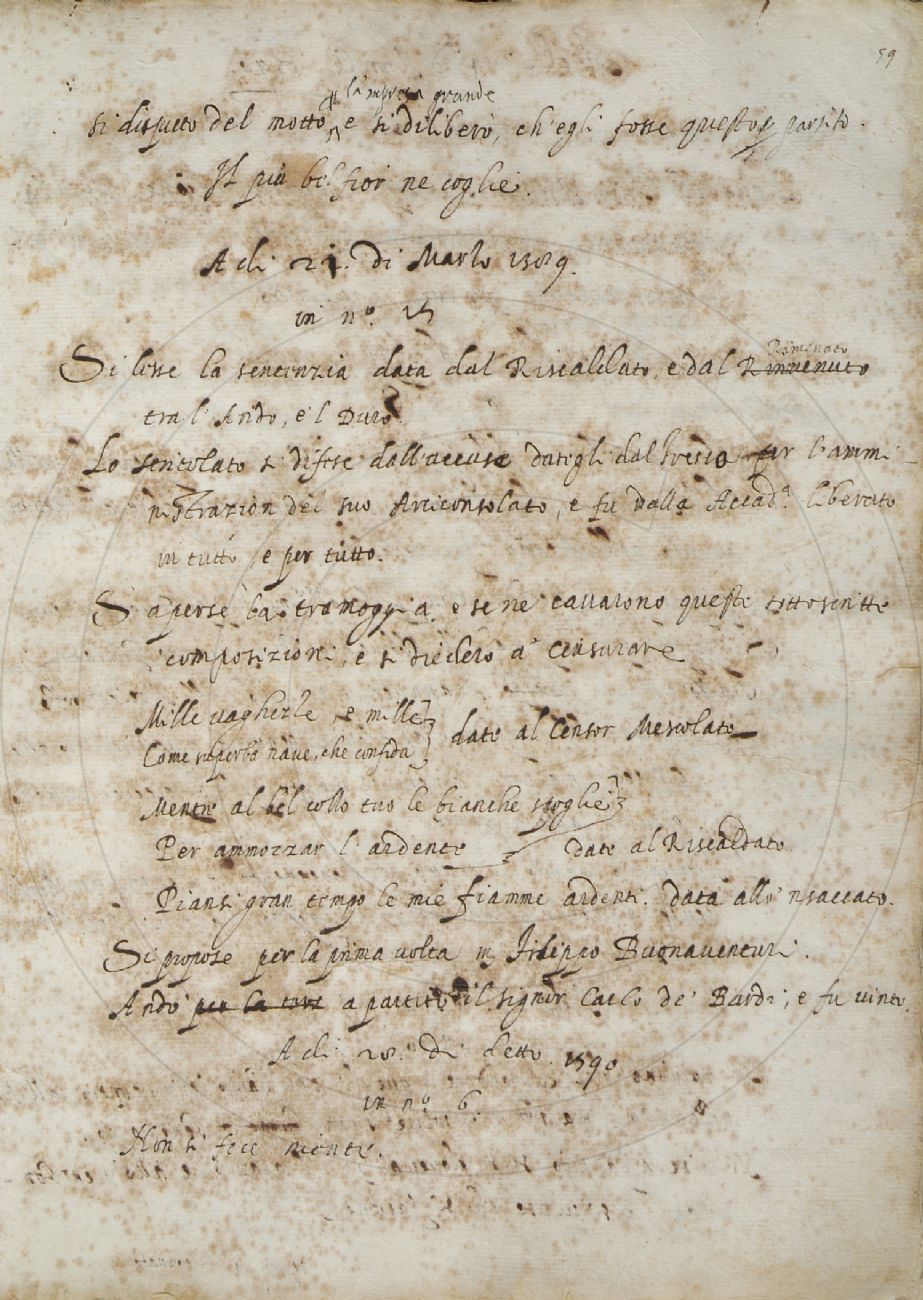 59
la impresa grande
si disputò del motto, e si diliberò, ch'egli fosse questo partito.
Il più bel fior ne coglie.
A di 21. di Marzo 1589.
in nº. 15
Si lesse la sentenzia data dal Riscaldato, e dal Rimenato Rinvenuto
tra l'Arido, e 'l Duro
Lo Stritolato si difese dall'accuse dategli dal per l'ammi-
nistrazion del suo Arciconsolato, e fu dalla Accad.ª liberato
in tutto, e per tutto.
S'aperse la tramoggia, e se ne cavarono queste sottoscritte
composizioni, e si diedero a censurare
Mille vaghezze, e mille
Come superba nave, che confida } date al Censor Mescolato
Mentre al bel collo tuo le bianche spoglie
Per ammorzar l'ardente date al Riscaldato.
Piansi gran tempo le mie fiamme ardenti. data allo 'nsaccato.
Si propose per la prima volta m. Filippo Buonaventuri.
Andò per la terz a partito il signor Carlo de' Bardi, e fu vinto.
A di 28. di detto. 1590
in nº 6
Non si fece niente.